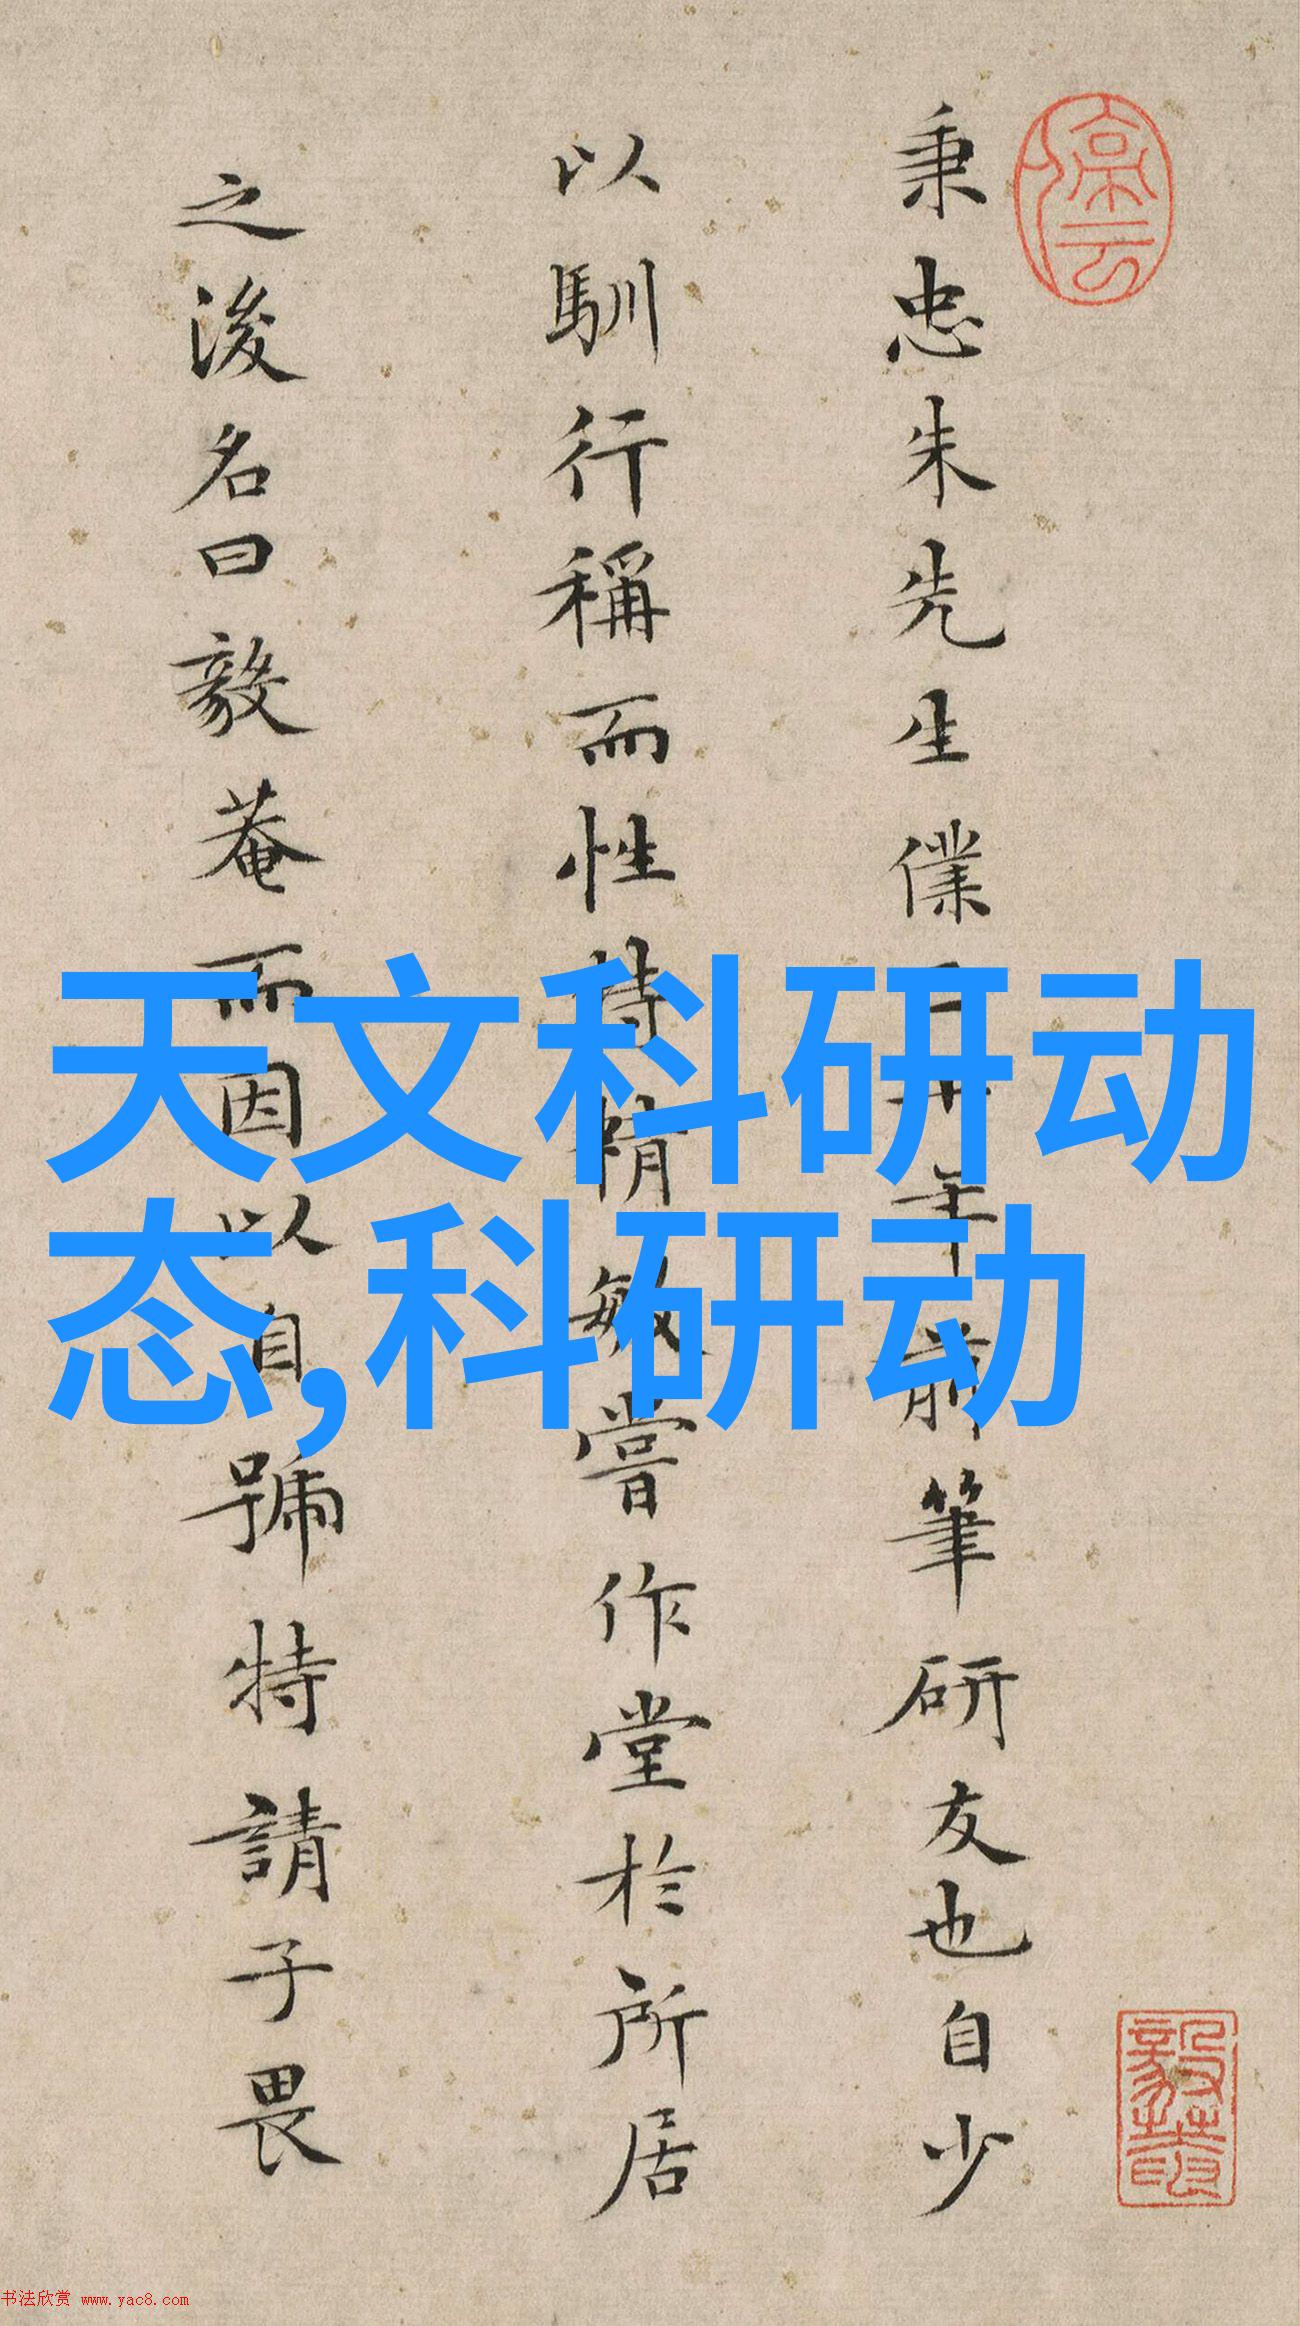 停云
秉忠朱先生僕十年前筆研友也自少
以馴行稱而性特精敏嘗作堂於所居
之後名曰毅菴而因以自號特請子畏
天文科研动
态,科研动
书法欣赏 www.yac8.com